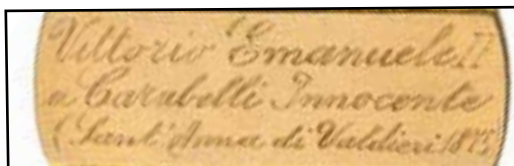 Vittorio Emanuele II
a Carabelli Innocente
(Sant'Anna di Valdieri